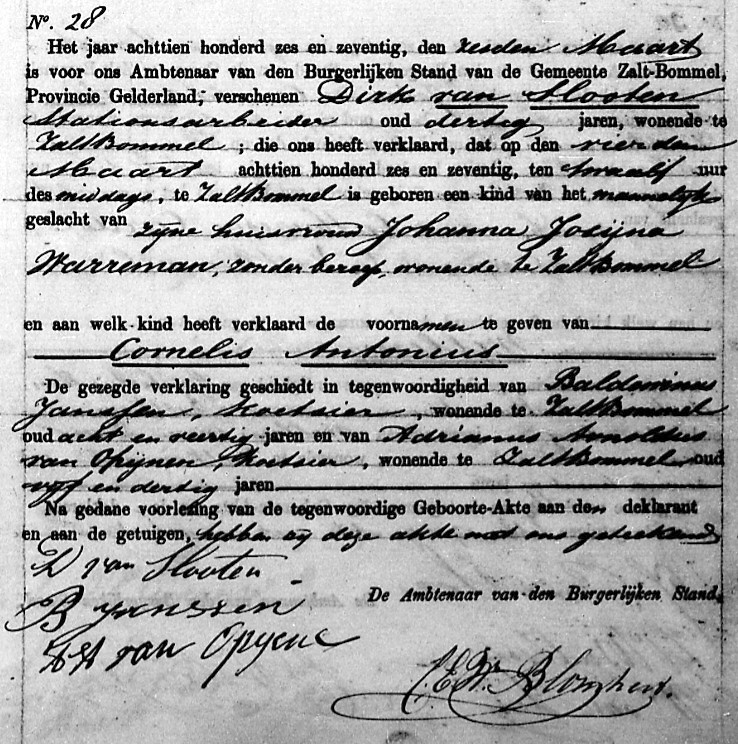 No. 28
Het jaar achttien honderd zes en zeventig, den zesden Maart
is voor ons Ambtenaar van den Burgerlijken Stand van de Gemeente Zalt-Bommel,
Provincie Gelderland, verschenen Dirk van Slooten
Stationsarbeider oud dertig jaren, wonende te
ZaltBommel ; die ons heeft verklaard, dat op den vierden
Maart achttien honderd zes en zeventig, ten twaalf uur
des middags, te ZaltBommel is geboren een kind van het mannelijk
geslacht van zijne huisvrouw Johanna Josijna
Warreman, zonder beroep, wonende te ZaltBommel
en aan welk kind heeft verklaard de voornamen te geven van
Cornelis Antonius
De gezegde verklaring geschiedt in tegenwoordigheid van Baldewinus
Janssen, Koetsier, wonende te ZaltBommel
oud acht en veertig jaren en van Adrianus Arnoldus
van Opijnen, Koetsier, wonende te ZaltBommel oud
vijf en dertig jaren
Na gedane voorlezing van de tegenwoordige Geboorte-Akte aan den deklarant
en aan de getuigen, hebben zij deze akte met ons geteekend
D van Slooten
B Janssen
De Ambtenaar van den Burgerlijken Stand,
AA van Opijnen